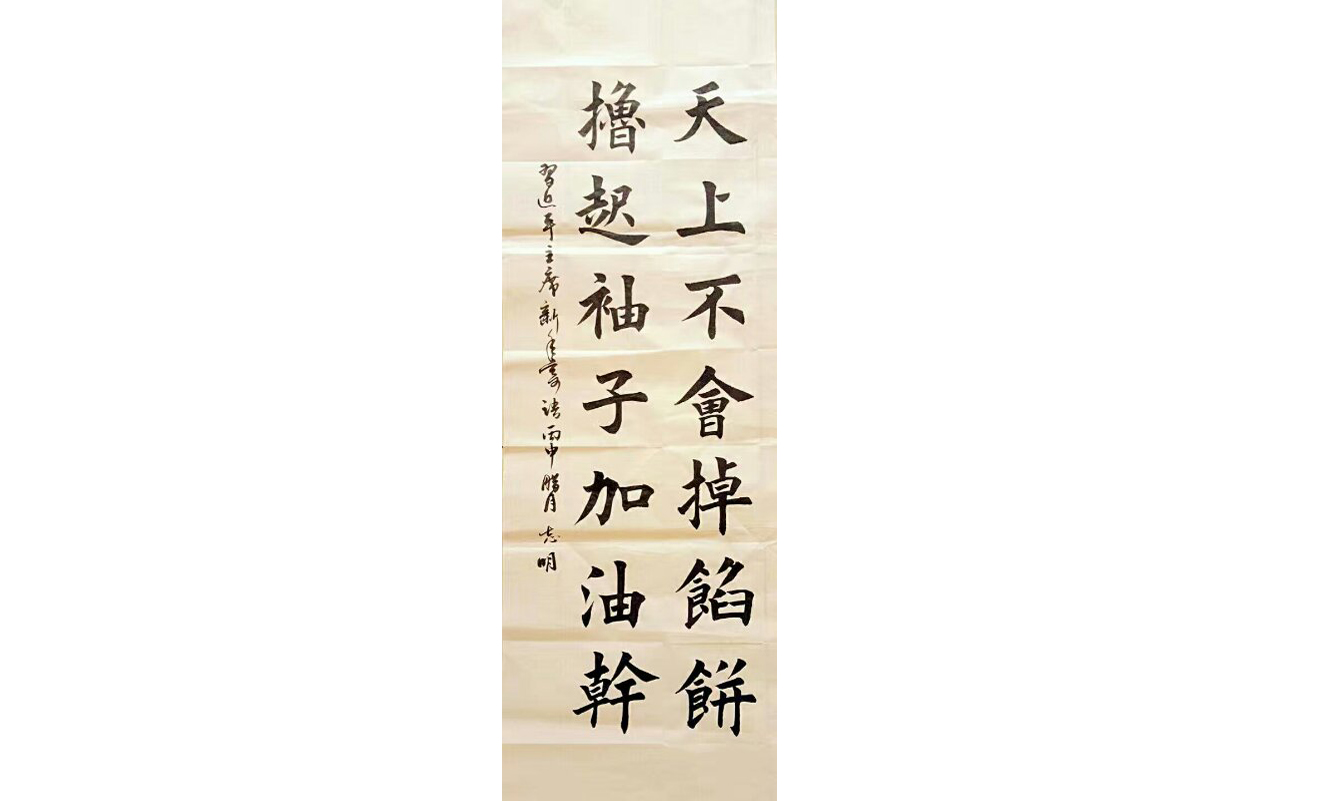 天上不會掉餡餅
擼起袖子加油幹
習近平主席新年寄語丙申腊月志明